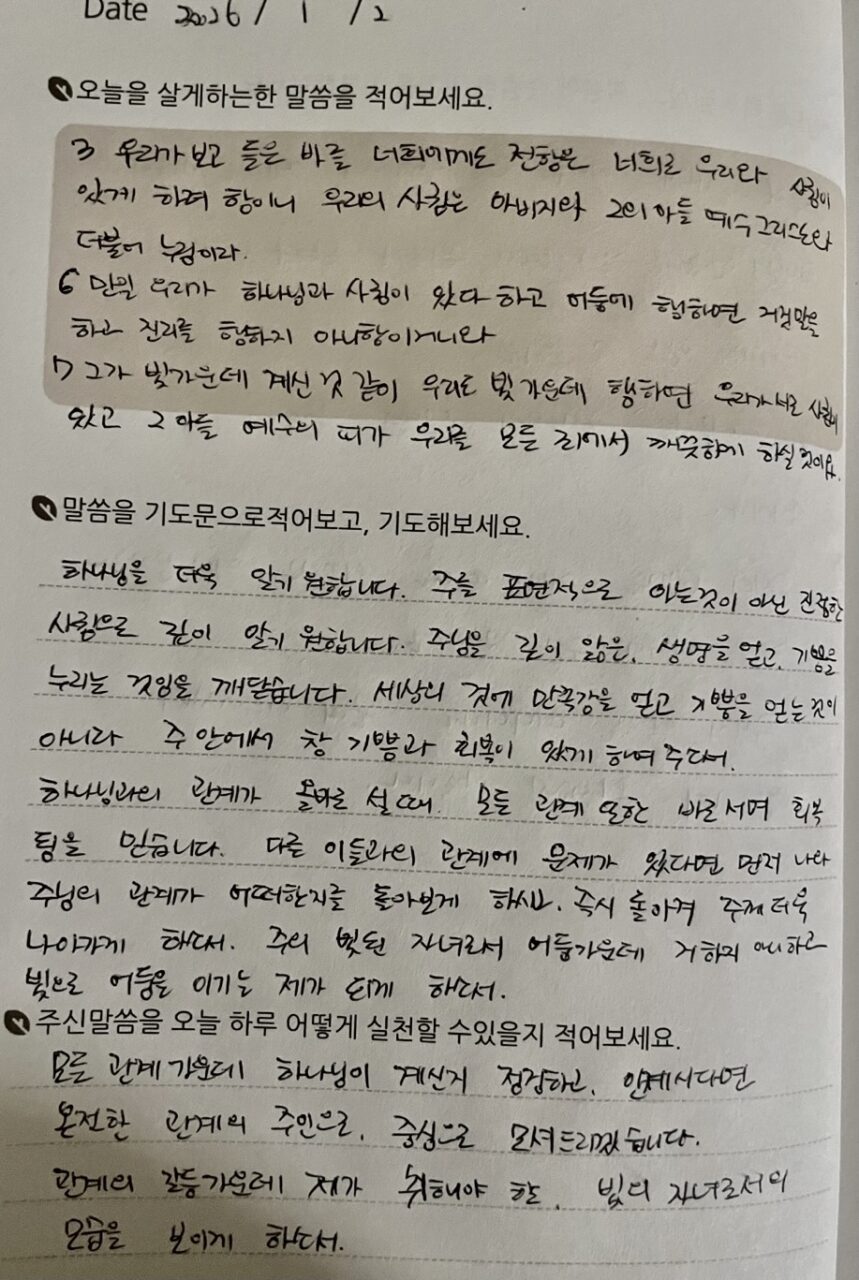 Date 2026 / 1 / 2
오늘을 살게하는한 말씀을 적어보세요.
3 우리가 보고 들은 바를 너희에게도 전함은 너희로 우리와 사귐이
있게 하려 함이니 우리의 사귐은 아버지와 그의 아들 예수그리스도와
더불어 누림이라.
6 만일 우리가 하나님과 사귐이 있다 하고 어둠에 행하면 거짓말을
하고 진리를 행하지 아니함이거니와
7 그가 빛가운데 계신 것 같이 우리도 빛 가운데 행하면 우리가 서로 사귐이
있고 그 아들 예수의 피가 우리를 모든 죄에서 깨끗하게 하실 것이요.
말씀을 기도문으로적어보고, 기도해보세요.
하나님을 더욱 알기 원합니다. 주를 표면적으로 아는것이 아닌 진정한
사귐으로 깊이 알기 원합니다. 주님을 깊이 앎은, 생명을 얻고, 기쁨을
누리는 것임을 깨닫습니다. 세상의 것에 만족감을 얻고 기쁨을 얻는것이
아니라 주 안에서 참 기쁨과 회복이 있게 하여 주소서.
하나님과의 관계가 올바로 설 때 모든 관계 또한 바로서며 회복
됨을 믿습니다. 다른 이들과의 관계에 문제가 있다면 먼저 나와
주님의 관계가 어떠한지를 돌아보게 하시고, 즉시 돌아켜 주께 더욱
나아가게 하소서. 주의 빛된 자녀로서 어둠가운데 거하지 아니하고
빛으로 어둠을 이기는 제가 되게 하소서.
주신말씀을 오늘 하루 어떻게 실천할 수있을지 적어보세요.
모든 관계 가운데 하나님이 계신지 점검하고, 안계시다면
온전한 관계의 주인으로, 중심으로 모셔드리겠습니다.
관계의 갈등가운데 제가 취해야 할, 빛의 자녀로서의
모습을 보이게 하소서.